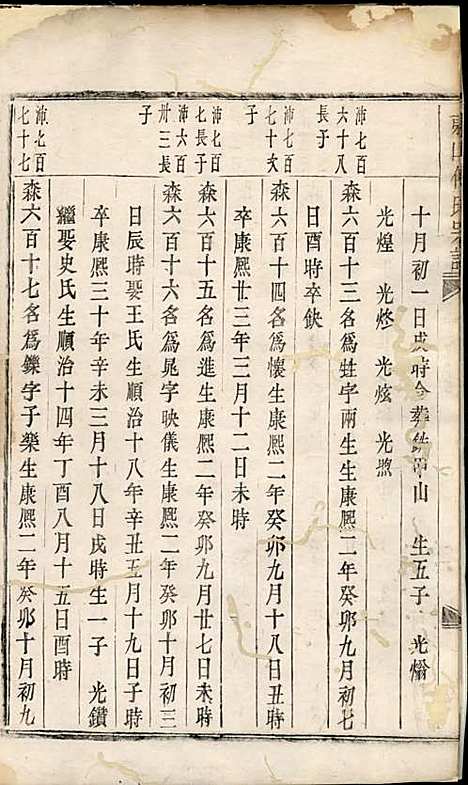 十月初一日戌時合葬鉄甲山　生五子　光爚
光煌　光㷡　光炫　光煦
沛七百六十八長子
森六百十三名爲蛙字兩生生康熙二年癸卯九月初七
日酉時卒缺
沛七百七十次子
森六百十四名爲懷生康熙二年癸卯九月十八日丑時
卒康熙廿三年三月十二日未時
沛六百七長子
森六百十五名爲進生康熙二年癸卯九月廿七日未時
沛六百卅三長子
森六百十六名爲晁字映儀生康熙二年癸卯十月初三
日辰時娶王氏生順治十八年辛丑五月十九日子時
卒康熙三十年辛未三月十八日戌時生一子　光鑽
繼娶史氏生順治十四年丁酉八月十五日酉時
沛七百七十七
森六百十七名爲鑠字子樂生康熙二年癸卯十月初九